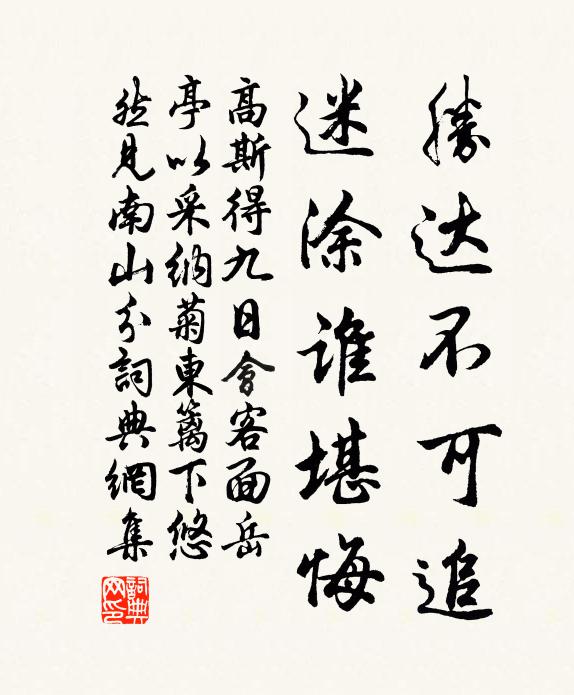 勝达不可追
迷涂谁堪悔
高斯得九日會客面岳
亭以采納菊東篱下悠
然見南山分詞典網集
詞典网印